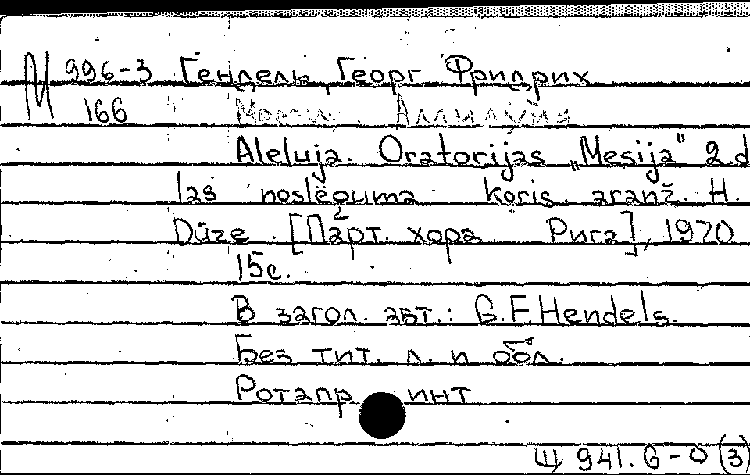 М 996-3 Гендель, Георг Фридрих
166 Мессия. Аллилуйя
Aleluja. Oratorijas „Mesija“ 2.d
ļas noslēguma koris. aranž. H.
Dūze. [Парт. хора Рига], 1970
15с.
В загол. авт.: G.F.Hendels.
Без тит. л. и обл.
Ротапринт
Щ 941.6-0 (3)